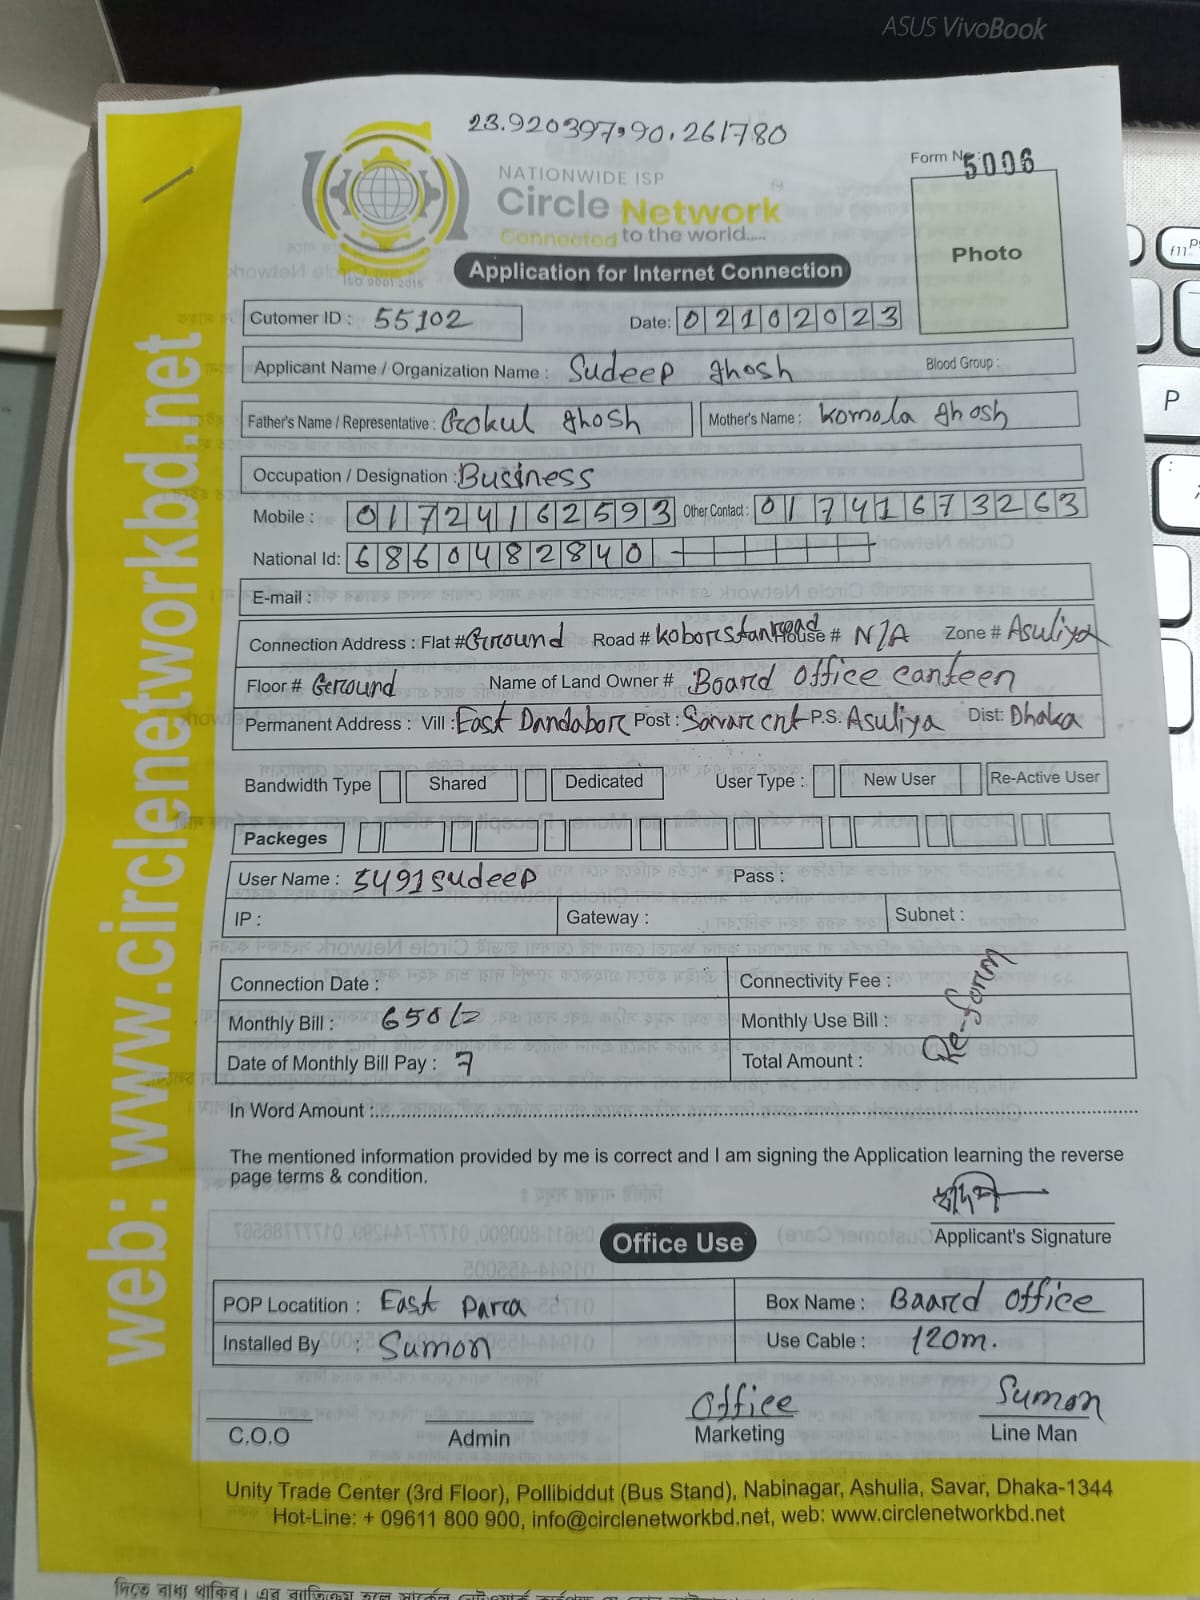 ASUS VivoBook
23.920397,90.261780
NATIONWIDE ISP
Circle Network
Connected to the world.....
ISO 9001:2015
Form No: 5006
Photo
Application for Internet Connection
Cutomer ID : 55102
Date: 02102023
Applicant Name / Organization Name : Sudeep Ghosh Blood Group :
Father's Name / Representative : Gokul Ghosh Mother's Name : Komola Ghosh
Occupation / Designation : Business
Mobile : 01724162593 Other Contact : 01741673263
National Id: 6860482840
E-mail :
Connection Address : Flat # Ground Road # koborstanroad House # N/A Zone # Asuliya
Floor # Ground Name of Land Owner # Board office canteen
Permanent Address : Vill : East Dandabor Post : Savar cnt P.S. Asuliya Dist: Dhaka
Bandwidth Type Shared Dedicated User Type : New User Re-Active User
Packeges
User Name : 5491sudeep Pass :
IP : Gateway : Subnet :
Connection Date : Connectivity Fee :
Monthly Bill : 650/= Monthly Use Bill :
Date of Monthly Bill Pay : 7 Total Amount :
Re-form
In Word Amount :
The mentioned information provided by me is correct and I am signing the Application learning the reverse
page terms & condition.
Applicant's Signature
Office Use
POP Locatition : East Para Box Name : Baard office
Installed By : Sumon Use Cable : 120m.
Office Sumon
C.O.O Admin Marketing Line Man
Unity Trade Center (3rd Floor), Pollibiddut (Bus Stand), Nabinagar, Ashulia, Savar, Dhaka-1344
Hot-Line: + 09611 800 900, info@circlenetworkbd.net, web: www.circlenetworkbd.net
web: www.circlenetworkbd.net
দিতে বাধ্য থাকিব। এর ব্যতিক্রম হলে সার্কেল
P
f11